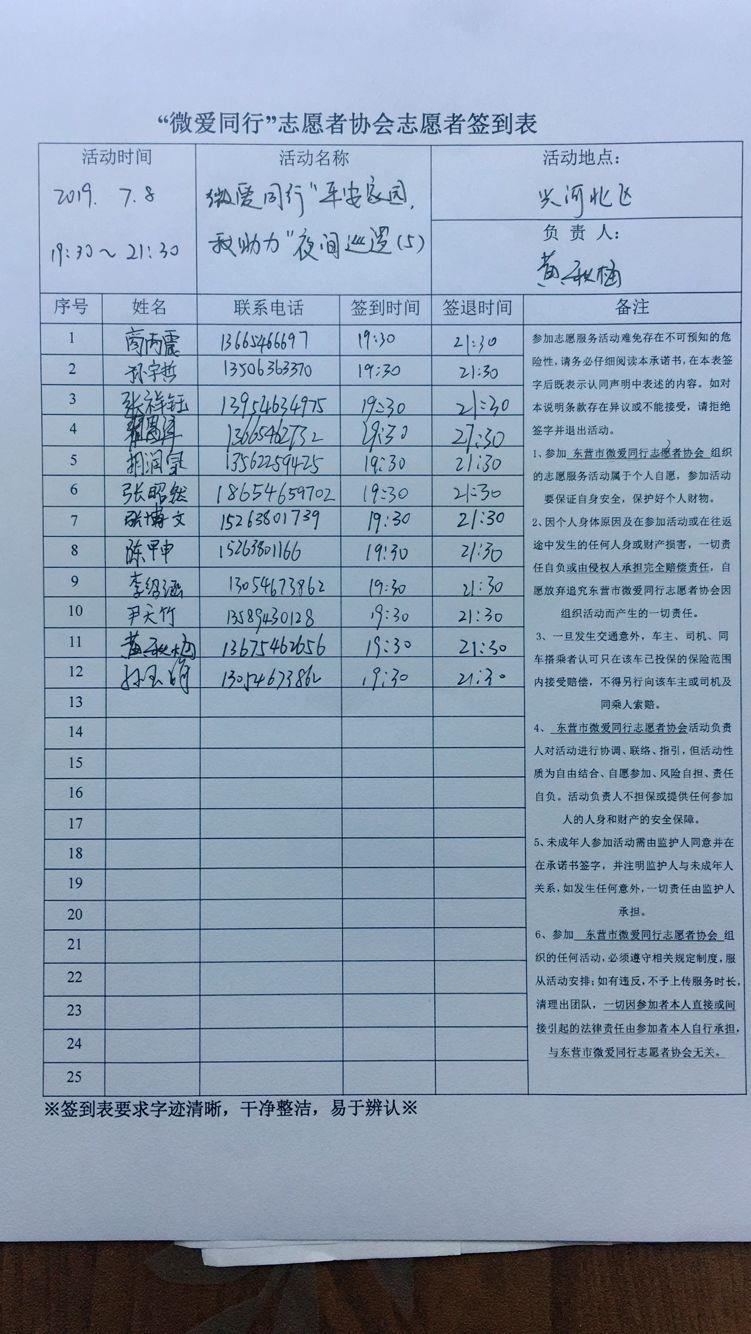 “微爱同行”志愿者协会志愿者签到表
活动时间 活动名称 活动地点：
2019. 7.8 微爱同行"平安家园, 兴河北区
19:30～21:30 我助力"夜间巡逻(5) 负 责 人：
黄秋梅
序号 姓名 联系电话 签到时间 签退时间 备注
1 商丙震 13665466697 19:30 21:30
2 孙宇哲 13506363370 19:30 21:30
3 张祥钰 13954634975 19:30 21:30
4 13665462732 19:30 21:30
5 胡润 13562259425 19:30 21:30
6 张昭然 18654659702 19:30 21:30
7 张博文 15263801739 19:30 21:30
8 陈甲申 15263801166 19:30 21:30
9 李绍涵 13054673862 19:30 21:30
10 尹天竹 13589430128 19:30 21:30
11 黄秋梅 13675462656 19:30 21:30
12 孙玉 13054673862 19:30 21:30
13
14
15
16
17
18
19
20
21
22
23
24
25
参加志愿服务活动难免存在不可预知的危
险性，请务必仔细阅读本承诺书，在本表签
字后既表示认同声明中表述的内容。如对
本说明条款存在异议或不能接受，请拒绝
签字并退出活动。
1、参加 东营市微爱同行志愿者协会 组织
的志愿服务活动属于个人自愿，参加活动
要保证自身安全，保护好个人财物。
2、因个人身体原因及在参加活动或在往返
途中发生的任何人身或财产损害，一切责
任自负或由侵权人承担完全赔偿责任，自
愿放弃追究东营市微爱同行志愿者协会因
组织活动而产生的一切责任。
3、一旦发生交通意外，车主、司机、同
车搭乘者认可只在该车已投保的保险范围
内接受赔偿，不得另行向该车主或司机及
同乘人索赔。
4、 东营市微爱同行志愿者协会活动负责
人对活动进行协调、联络、指引，但活动性
质为自由结合、自愿参加、风险自担、责任
自负。活动负责人不担保或提供任何参加
人的人身和财产的安全保障。
5、未成年人参加活动需由监护人同意并在
在承诺书签字，并注明监护人与未成年人
关系，如发生任何意外，一切责任由监护人
承担。
6、参加 东营市微爱同行志愿者协会 组
织的任何活动，必须遵守相关规定制度，服
从活动安排；如有违反，不予上传服务时长，
清理出团队，一切因参加者本人直接或间
接引起的法律责任由参加者本人自行承担，
与东营市微爱同行志愿者协会无关。
※签到表要求字迹清晰，干净整洁，易于辨认※